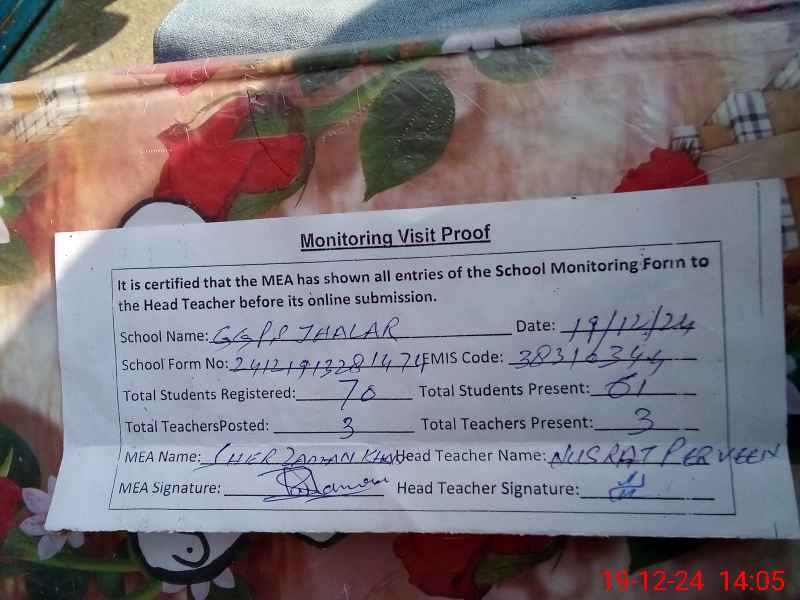 Monitoring Visit Proof
It is certified that the MEA has shown all entries of the School Monitoring Form to
the Head Teacher before its online submission.
School Name: GGPS JHALAR Date: 19/12/24
School Form No: EMIS Code:
Total Students Registered: 70 Total Students Present: 61
Total TeachersPosted: 3 Total Teachers Present: 3
MEA Name: SHER ZAMAN KHAN Head Teacher Name: NUSRAT PERVEEN
MEA Signature: Head Teacher Signature:
19-12-24 14:05